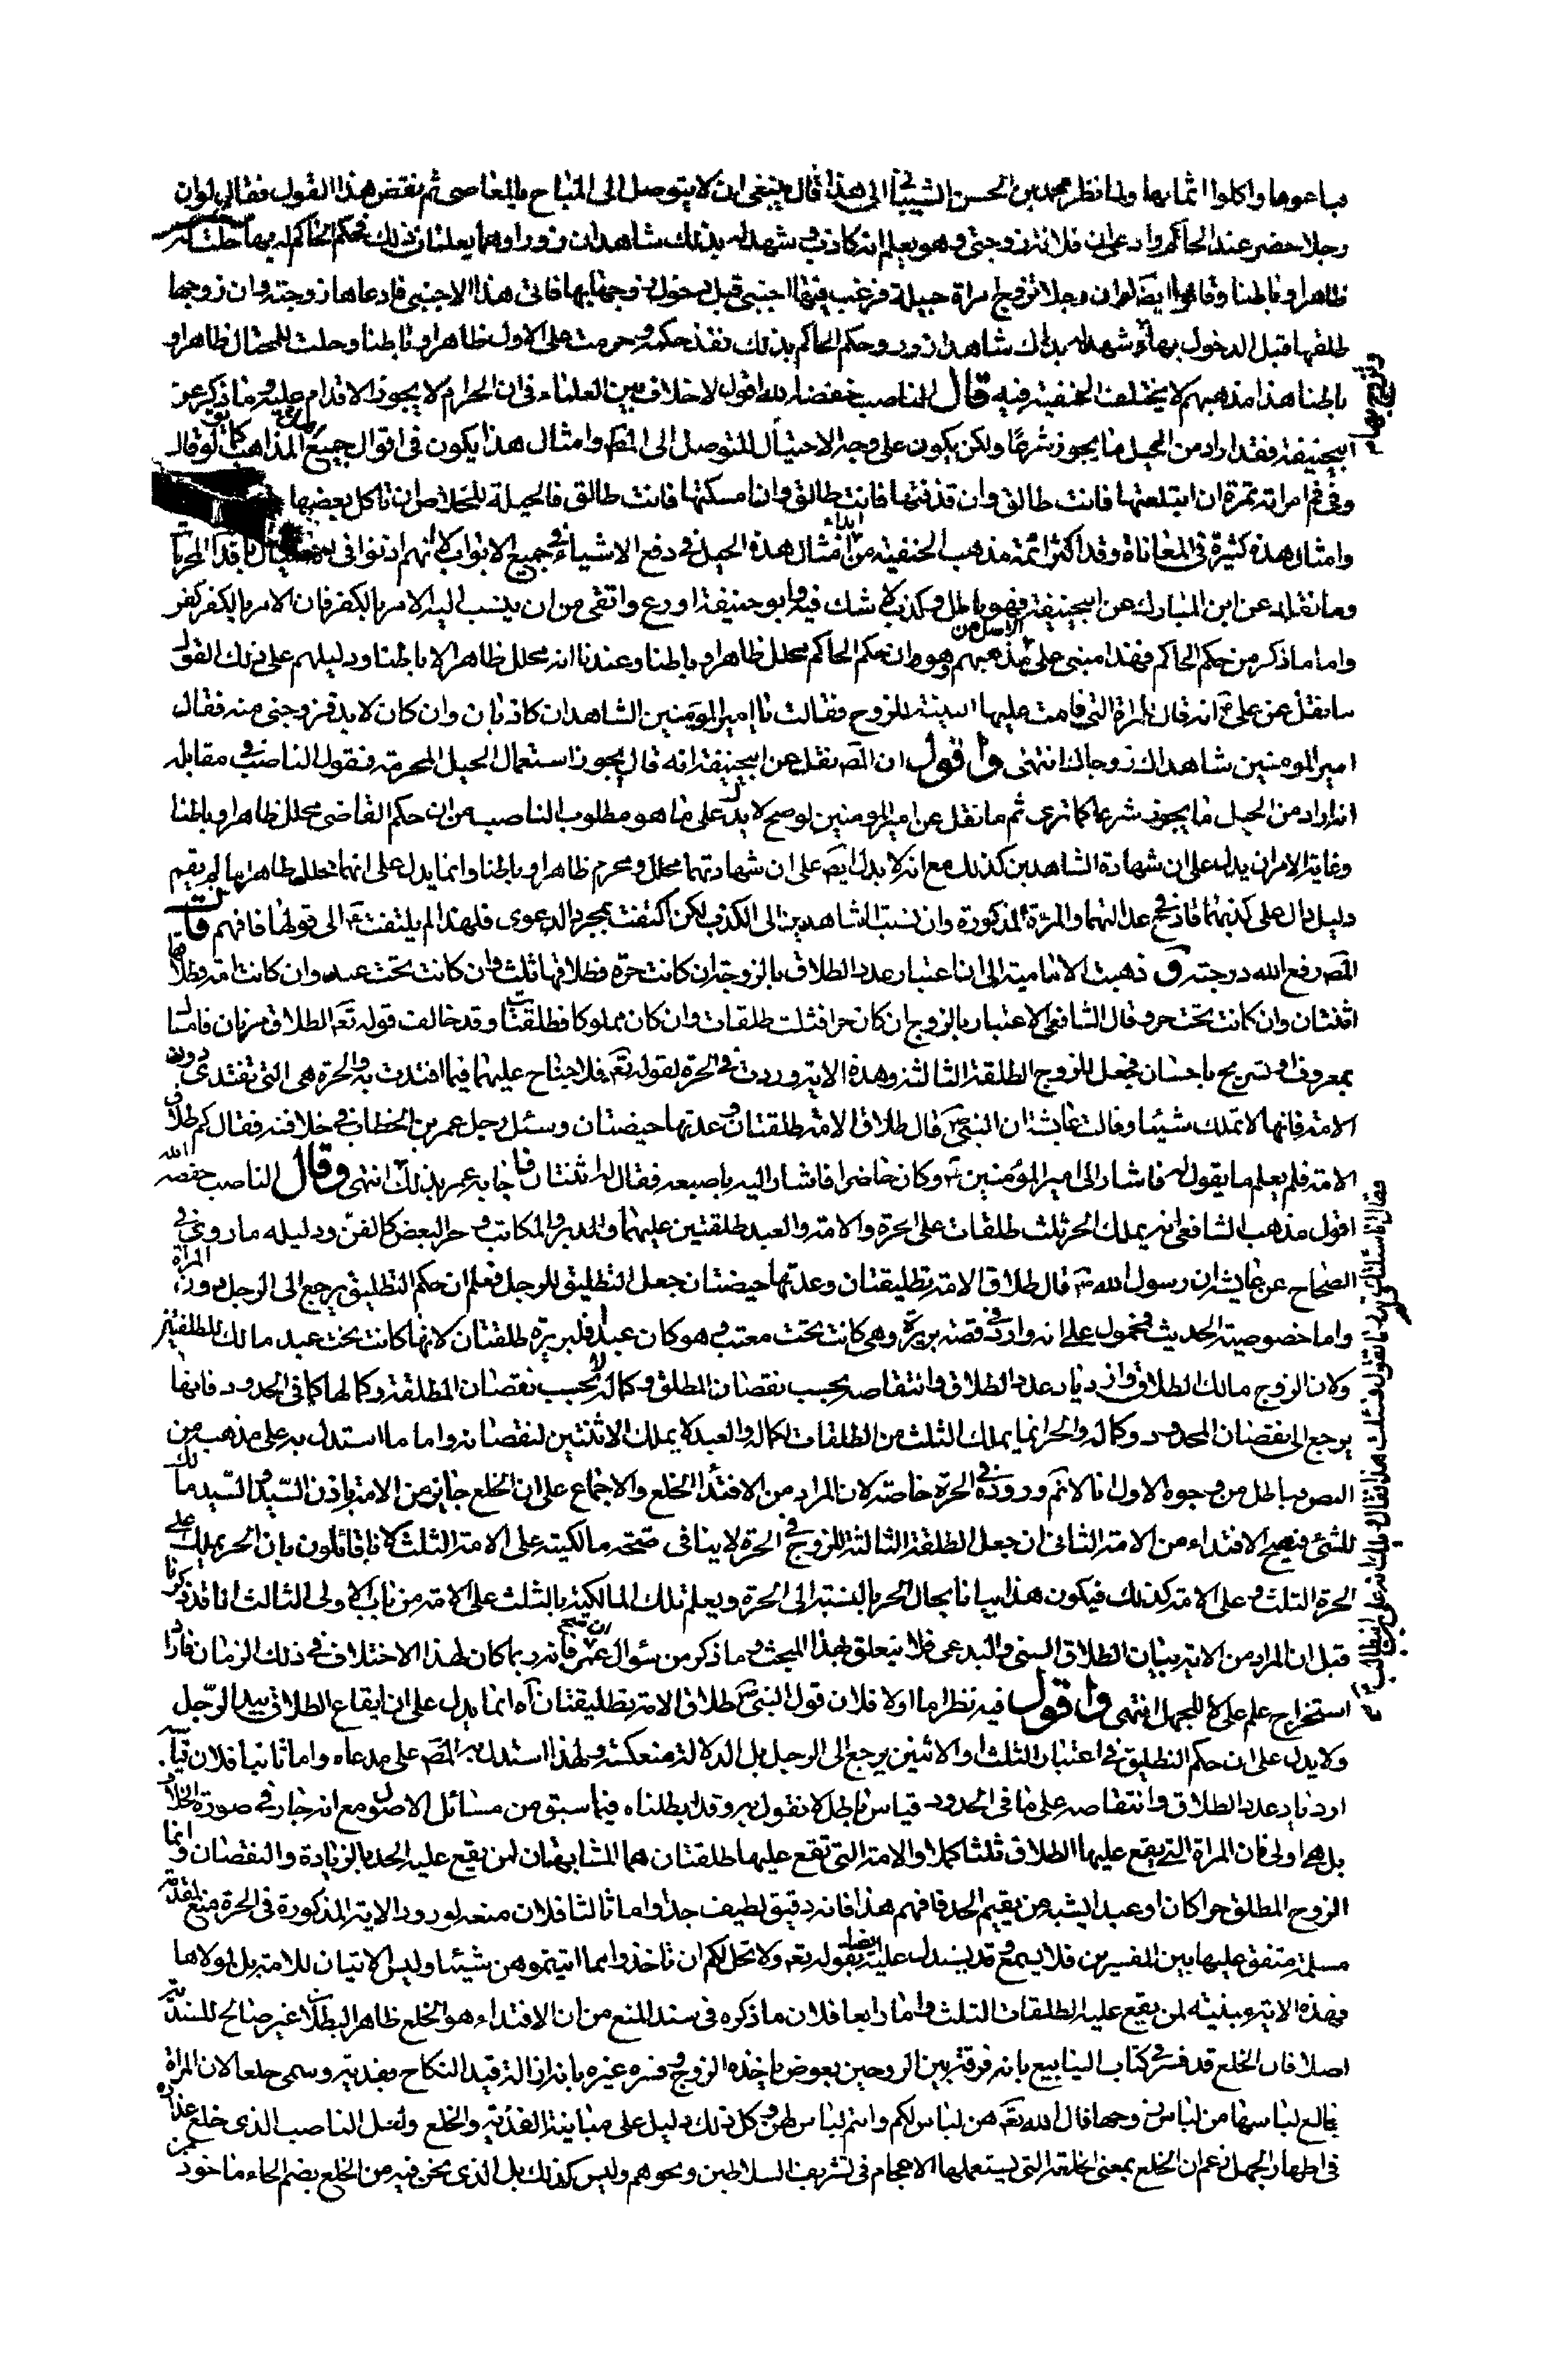 فباعوها واكلوا اثمانها ولما نظر محمد بن الحسن الشيباني الى هذا قال ينبغي ان لا يتوصل الى المباح بالمعاصي ثم نقض هذا القول فقال لو ان
رجلا حضر عند الحاكم وادعى ان فلانة زوجتي وهو يعلم انه كاذب وشهد له بذلك شاهدان زورا وهما يعلمان ذلك فحكم الحاكم له بها حلت له
ظاهرا وباطنا وقالوا ايضا لو ان رجلا تزوج امراة جميلة فرغب فيها اجنبي قبل دخول زوجها بها فاتى هذا الاجنبي فادعاها زوجته وان زوجها
طلقها قبل الدخول بها وشهد له بذلك شاهدا زور وحكم الحاكم بذلك نفذ حكمه وحرمت على الاول ظاهرا وباطنا وحلت للمحتال ظاهرا و
باطنا هذا مذهبهم لا يختلف الحنفية فيه قال الناصب خفضه الله اقول لا خلاف بين العلماء في ان الحرام لا يجوز الاقدام عليه وما ذكر عن
ابيحنيفة فقد اراد من الحيل ما يجوز شرعا ولكن يكون على وجه الاحتيال للتوصل الى المط وامثال هذا يكون في اقوال جميع المذاهب كما لو قال
وفي فم امراته تمرة ان ابتلعتها فانت طالق وان قذفتها فانت طالق وان امسكتها فانت طالق فالحيلة للخلاص ان تاكل بعضها
وامثال هذه كثيرة في المغاناة وقد اكثر ائمة مذهب الحنفية من ابداء امثال هذه الحيل في دفع الاشياء في جميع الابواب لا انهم اذنوا في المحرمات
وما نقله عن ابن المبارك عن ابيحنيفة فهو باطل وكذب لا شك فيه وابو حنيفة اورع واتقى من ان ينسب اليه الامر بالكفر فان الامر بالكفر كفر
واما ما ذكر من حكم الحاكم فهذا مبني على الاصل من مذهبهم وهو ان حكم الحاكم محلل ظاهرا وباطنا وعندنا انه محلل ظاهرا لا باطنا ودليلهم على ذلك القول
ما نقل عن علي انه قال للمراة التي قامت عليها البينة للزوج فقالت يا امير المؤمنين الشاهدان كاذبان وان كان لا بد فزوجني منه فقال
امير المومنين شاهداك زوجاك انتهى واقول ان المص نقل عن ابيحنيفة انه قال يجوز استعمال الحيل المحرمة فنقول الناصب في مقابله
انه اراد من الحيل ما يجوز شرعا كما ترى ثم ما نقل عن امير المومنين لو صح لا يدل على ما هو مطلوب الناصب من ان حكم القاضي محلل ظاهرا وباطنا
وغاية الامر ان يدل على ان شهادة الشاهدين كذلك مع انه لا يدل ايض على ان شهادتهما محلل ومحرم ظاهرا وباطنا وانما يدل على انها تحلل ظاهرا ما لم يقم
دليل دال على كذبهما قادح في عدالتهما والمرأة المذكورة وان نسبت الشاهدين الى الكذب لكن اكتفت بمجرد الدعوى فلهذا لم يلتفت ع الى قولها فافهم قال
المص رفع الله درجته ق ذهبت الامامية الى ان اعتبار عدد الطلاق بالزوجة ان كانت حرة فطلاقها ثلث وان كانت تحت عبد وان كانت امة فطلاقها
اثنتان وان كانت تحت حر وقال الشافعي الاعتبار بالزوج ان كان حرا فثلث طلقات وان كان مملوكا فطلقتان وقد خالف قوله تعه الطلاق مرتان فامساك
بمعروف او تسريح باحسان فجعل للزوج الطلقة الثالثة وهذه الاية وردت في الحرة لقوله تعه فلا جناح عليهما فيما افتدت به والحرة هي التي تفتدي دون
الامة فانها لا تملك شيئا وقالت عايشة ان النبي ص قال طلاق الامة طلقتان وعدتها حيضتان وسئل رجل عمر بن الخطاب في خلافته فقال كم طلاق
الامة فلم يعلم ما يقول له فاشار الى امير المؤمنين ع وكان حاضرا فاشار اليه باصبعه فقال له اثنتان فاجابه عمر بذلك انتهى وقال الناصب خفضه الله
اقول مذهب الشافعي انه يملك الحر ثلث طلقات على الحرة والامة والعبد طلقتين عليهما والمدبر والمكاتب وحر البعض كالقن ودليله ما روي في
الصحاح عن عايشة ان رسول الله ص قال طلاق الامة تطليقتان وعدتها حيضتان جعل التطليق للرجل فعلم ان حكم التطليق يرجع الى الرجل دون المراة
واما خصوصية الحديث فمحمول على انه وارد في قصة بريرة وهي كانت تحت معتب وهو كان عبدا فلبريرة طلقتان لانها كانت تحت عبد مالك للطلقتين
ولان الزوج مالك الطلاق وازدياد عدد الطلاق وانتقاصه بحسب نقصان المطلق وكماله لا بحسب نقصان المطلقة وكمالها كما في الحدود فانها
يرجع الى نقصان المحدود وكماله والحر انما يملك الثلث من الطلقات لكماله والعبد لا يملك الا ثنتين لنقصانه واما ما استدل به على مذهبه من
النص فباطل من وجوه الاول انا لا نم وروده في الحرة خاصة لان المراد من الافتداء الخلع والاجماع على ان الخلع جايز من الامة باذن السيد والسيد مالك
للشئ فيصح الافتداء من الامة الثاني ان جعل الطلقة الثالثة للزوج في الحرة لا ينافي صحة مالكيته على الامة الثلث لانا قائلون بان الحر يملك على
الحرة الثلث وعلى الامة كذلك فيكون هذا بيانا بحال الحر بالنسبة الى الحرة ويعلم تلك المالكية بالثلث على الامة من باب الاولى الثالث انا قد ذكرنا
قبل ان المراد من الاية بيان الطلاق السني والبدعي فلا يتعلق بهذا المبحث وما ذكر من سؤال عمر ان صح فانه ربما كان لهذا الاختلاف في ذلك الزمان فاراد
استخراج علم علي لا للجهل انتهى واقول فيه نظر اما اولا فلان قول النبي ص طلاق الامة تطليقتان آه انما يدل على ان ايقاع الطلاق بيد الرجل
ولا يدل على ان حكم التطليق في اعتبار الثلث او الاثنين يرجع الى الرجل بل الدلالة منعكسة ولهذا استدل به المص على مدعاه واما ثانيا فلان قياس
ازدياد عدد الطلاق وانتقاصه على ما في الحدود قياس باطل لا نقول به وقد ابطلناه فيما سبق من مسائل الاصول مع انه جار في صورة الخلاف
بل هي اولى فان المراة التي يقع عليها الطلاق ثلثا كملا والامة التي تقع عليها طلقتان هما المشابهتان لمن يقع عليه الحد بالزيادة والنقصان وانما
الزوج المطلق حرا كان او عبدا يشبه من يقيم الحد فافهم هذا فانه دقيق لطيف جدا واما ثالثا فلان منعه لورود الاية المذكورة في الحرة منع لمقدمة
مسلمة متفق عليها بين المفسرين فلا يسمع وقد يستدل عليه ايضا بقوله تعه ولا تحل لكم ان تاخذوا مما اتيتموهن شيئا وليس الاتيان للامة بل لمولاها
فهذه الاية مبنية لمن يقع عليه الطلقات الثلث واما رابعا فلان ما ذكره في سند المنع من ان الافتداء هو الخلع ظاهر البطلان غير صالح للسندية
اصلا فان الخلع قد فسر في كتاب الينابيع بانه فرقة بين الزوجين بعوض ياخذه الزوج وفسره غيره بانه ازالة قيد النكاح بفدية وسمي خلعا لان المراة
تخالع لباسها من لباس زوجها قال الله تعه هن لباس لكم وانتم لباس لهن وكل ذلك دليل على مباينة الفدية والخلع ولعل الناصب الذي خلع عذاره
في اظهار الجهل زعم ان الخلع بمعنى الخلعة التي يستعملها الاعجام في تشريف السلاطين ونحوهم وليس كذلك بل الذي نحن فيه من الخلع بضم الخاء ماخوذ من